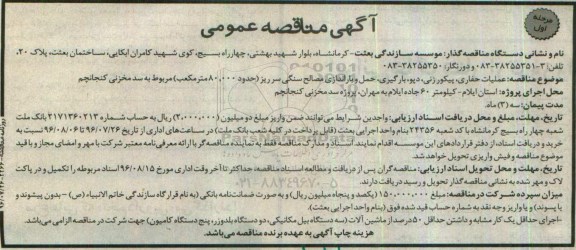 مرحله
اول
آگهی مناقصه عمومی
نام و نشانی دستگاه مناقصه گذار: موسسه سازندگی بعثت- کرمانشاه، بلوار شهید بهشتی، چهارراه بسیج، کوی شهید کامران ابکایی، ساختمان بعثت، پلاک ۲۰،
تلفن: ۳-۳۸۲۵۵۳۵۱-۰۸۳ و دورنگار: ۳۸۲۵۵۳۵۰-۰۸۳
موضوع مناقصه: عملیات حفاری، پیکور زنی، دپو، بارگیری، حمل و باراندازی مصالح سنگی سرریز (حدود ۸۰,۰۰۰ مترمکعب) مربوط به سد مخزنی کنجانچم
محل اجرای پروژه: استان ایلام- کیلومتر ۶۰ جاده ایلام به مهران، پروژه سد مخزنی کنجانچم
مدت پیمان: سه (۳) ماه.
تاریخ، مهلت، مبلغ و محل دریافت اسناد ارزیابی: واجدین شرایط می‌توانند ضمن واریز مبلغ دو میلیون (۲,۰۰۰,۰۰۰) ریال به حساب شماره ۲۱۷۱۳۶۰۲۱۳ بانک ملت
شعبه چهار راه بسیج کرمانشاه با کد شعبه ۲۴۳۵۶ بنام واحد اجرایی بعثت (قابل پرداخت در کلیه شعب بانک ملت) در ساعت‌های اداری از تاریخ ۹۶/۰۷/۲۶ تا ۹۶/۰۸/۰۶ نسبت به
خرید و دریافت اسناد، از دفتر قراردادهای این موسسه اقدام نمایند. اسناد و مدارک مناقصه فقط به نماینده مناقصه‌گر با ارائه معرفی‌نامه معتبر شرکت با مهر و امضای مجاز و با قید
موضوع مناقصه و فیش واریزی تحویل خواهد شد.
تاریخ، مهلت و محل تحویل اسناد ارزیابی: مناقصه‌گران پس از دریافت و مطالعه اسناد مناقصه، حداکثر تا آخر وقت اداری مورخ ۹۶/۰۸/۱۵ اسناد مربوطه را تکمیل و در پاکت
لاک و مهر شده به نشانی مناقصه‌گذار تحویل و رسید دریافت دارند.
میزان سپرده شرکت در مناقصه: مبلغ ۱۵۰,۰۰۰,۰۰۰ ریال (یکصد و پنجاه میلیون ریال) و به صورت ضمانت‌نامه بانکی (به نام قرارگاه سازندگی خاتم الانبیاء (ص) - بدون پیشوند و
یا پسوند) و یا واریز وجه نقد به شماره حساب قید شده فوق (بنام واحد اجرایی بعثت).
-اجرای حداقل یک کار مشابه و داشتن حداقل ۵۰ درصد از ماشین آلات (سه دستگاه بیل مکانیکی، دو دستگاه بلدوزر، پنج دستگاه کامیون) جهت شرکت در مناقصه الزامی می‌باشد.
هزینه چاپ آگهی به عهده برنده مناقصه می‌باشد